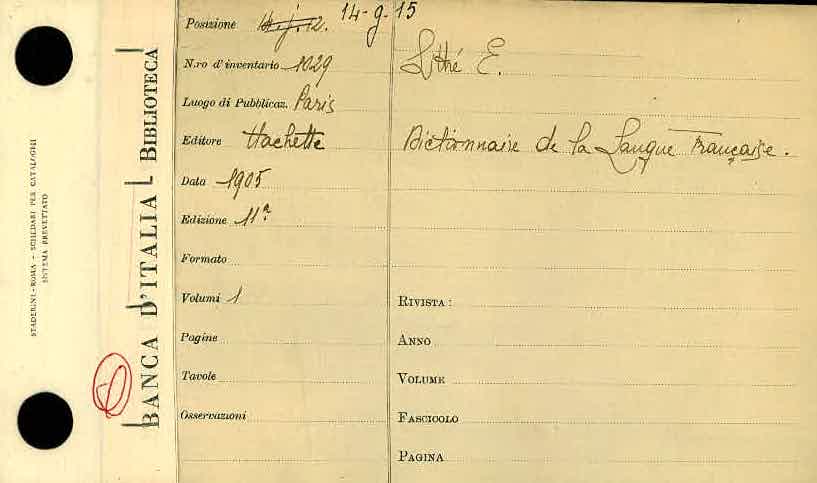 STADERINI - ROMA - SCHEDARI PER CATALOGHI
SISTEMA BREVETTATO
BANCA D'ITALIA - BIBLIOTECA
Posizione 14-g.15
N.ro d'inventario 1029
Luogo di Pubblicaz. Paris
Editore Hachette
Data 1905
Edizione 11ª
Formato
Volumi 1
Pagine
Tavole
Osservazioni
Littré E.
Dictionnaire de la Langue Française.
RIVISTA:
ANNO
VOLUME
FASCICOLO
PAGINA